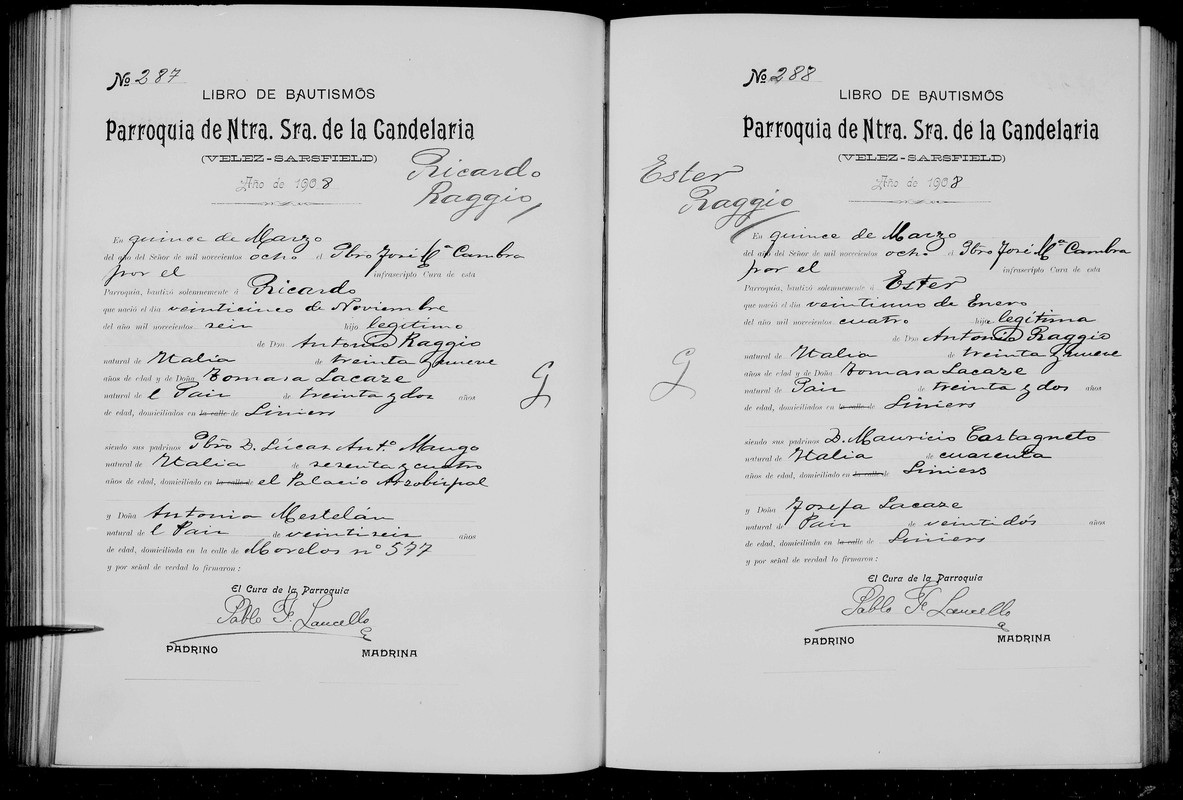 No 287
LIBRO DE BAUTISMOS
Parroquia de Ntra. Sra. de la Candelaria
(VELEZ-SARSFIELD)
Año de 1908
Ricardo
Raggio
En quince de Marzo
del año del Señor de mil novecientos ocho el Pbro José Mª Cambra
por el infrascripto Cura de esta
Parroquia, bautizó solemnemente á Ricardo
que nació el día veinticinco de Noviembre
del año mil novecientos seis hijo legítimo
de Don Antonio Raggio
natural de Italia de treinta y nueve
años de edad y de Doña Tomasa Lacaze
natural de l Pais de treinta y dos años
de edad, domiciliados en la calle de Liniers
siendo sus padrinos Pbro D. Lúcas Antº Mango
natural de Italia de sesenta y cuatro
años de edad, domiciliado en la calle de el Palacio Arzobispal
y Doña Antonia Mestelán
natural de l Pais de veintiseis años
de edad, domiciliada en la calle de Morelos nº 577
y por señal de verdad lo firmaron:
El Cura de la Parroquia
Pablo F. Lancello
PADRINO MADRINA
No 288
LIBRO DE BAUTISMOS
Parroquia de Ntra. Sra. de la Candelaria
(VELEZ-SARSFIELD)
Año de 1908
Ester
Raggio
En quince de Marzo
del año del Señor de mil novecientos ocho el Pbro José Mª Cambra
por el infrascripto Cura de esta
Parroquia, bautizó solemnemente á Ester
que nació el día veintiuno de Enero
del año mil novecientos cuatro hija legítima
de Don Antonio Raggio
natural de Italia de treinta y nueve
años de edad y de Doña Tomasa Lacaze
natural de Pais de treinta y dos años
de edad, domiciliados en la calle de Liniers
siendo sus padrinos D. Mauricio Castagneto
natural de Italia de cuarenta
años de edad, domiciliado en la calle de Liniers
y Doña Josefa Lacaze
natural de Pais de veintidós años
de edad, domiciliada en la calle de Liniers
y por señal de verdad lo firmaron:
El Cura de la Parroquia
Pablo F. Lancello
PADRINO MADRINA